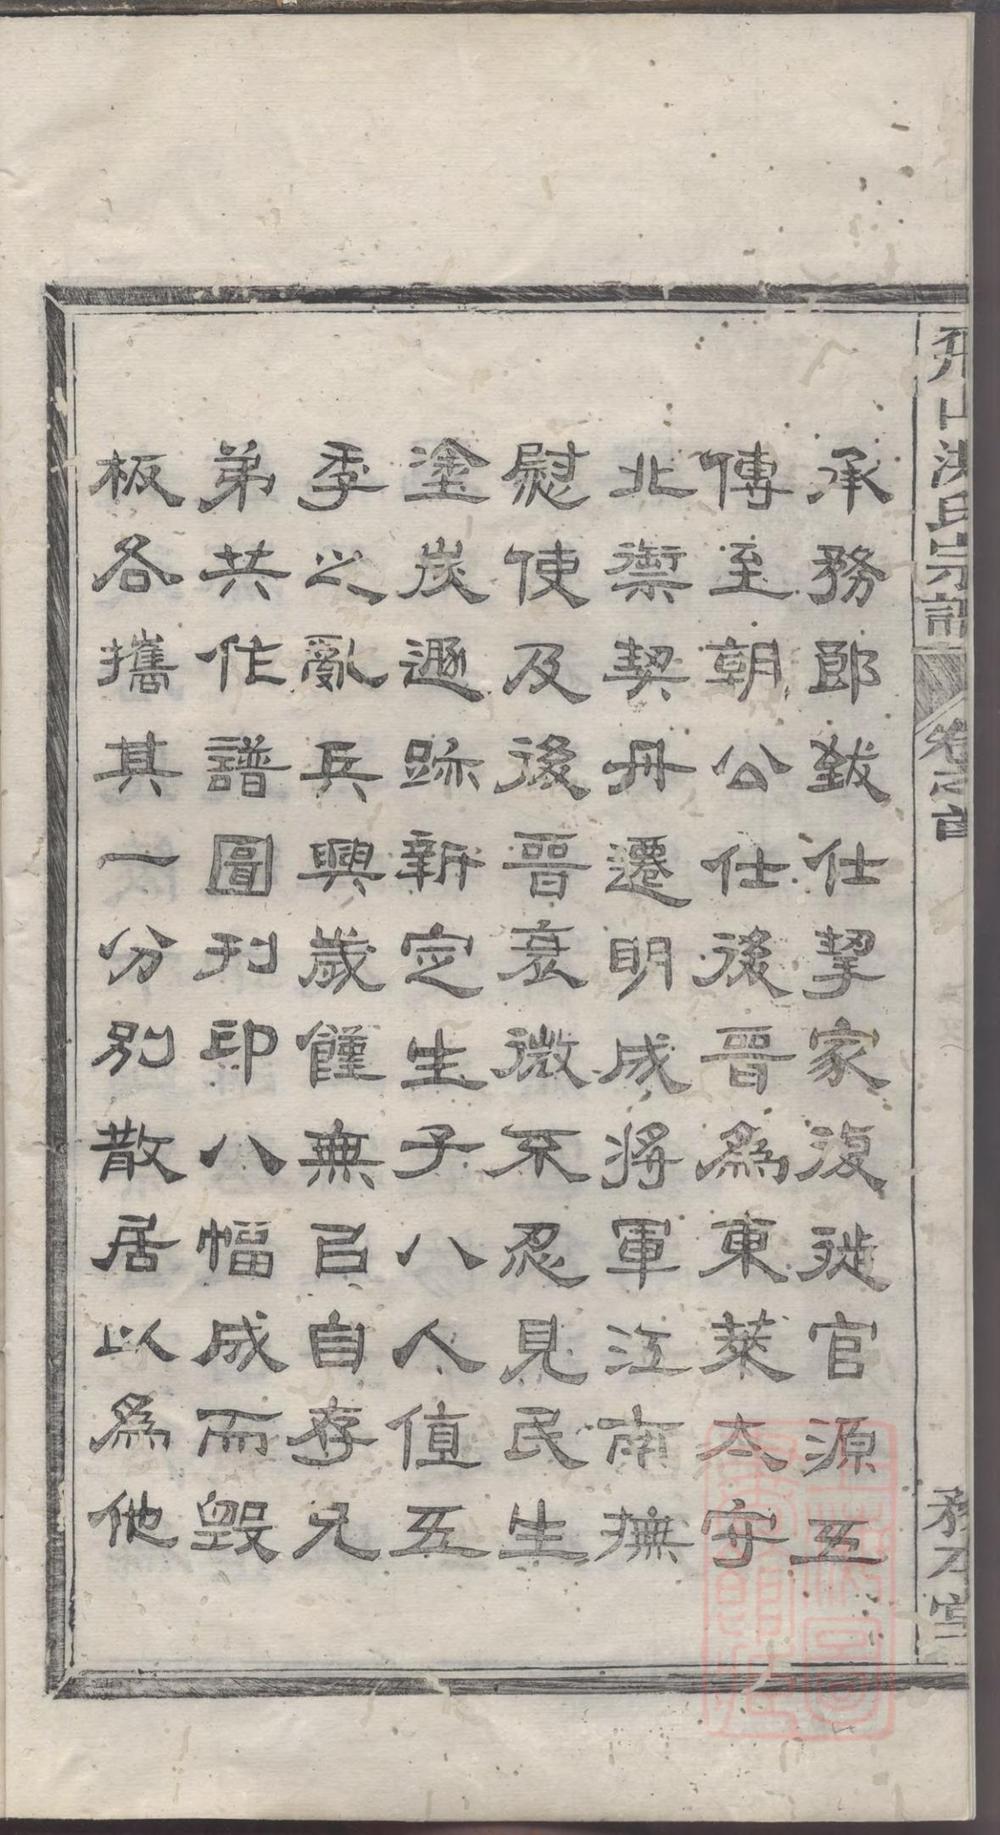 承務郎致仕挈家復徙官源五
傳至朝公仕後晉為東萊太守
北禦契丹遷明成將軍江南撫
慰使及後晉衰微不忍見民生
塗炭遯跡新定生子八人值五
季之亂兵興歲饉無已自存兄
弟共作譜圖刊印八幅成而毀
板各攜其一分別散居以為他
山洪氏宗譜
卷之首